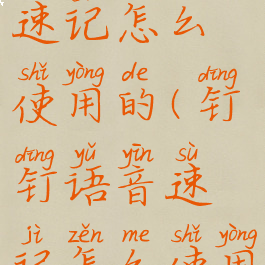 速记怎么
shǐ yòng de dīng
使用的(钉
dīng yǔ yīn sù
钉语音速
jì zěn me shǐ yòng
记怎么使用